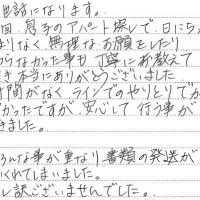 世話になります。
回、息子のアパート探しで、日にち
まりなく、無理なお願をしたり
からなかった事も丁寧にお教えて
き本当にありがとうございました
時間がなく、ラインでのやりとりで
かったですが、安心して行う事が
きました。
ろんな事が重なり、書類の発送が
くれてしまいました。
し訳ございませんでした。